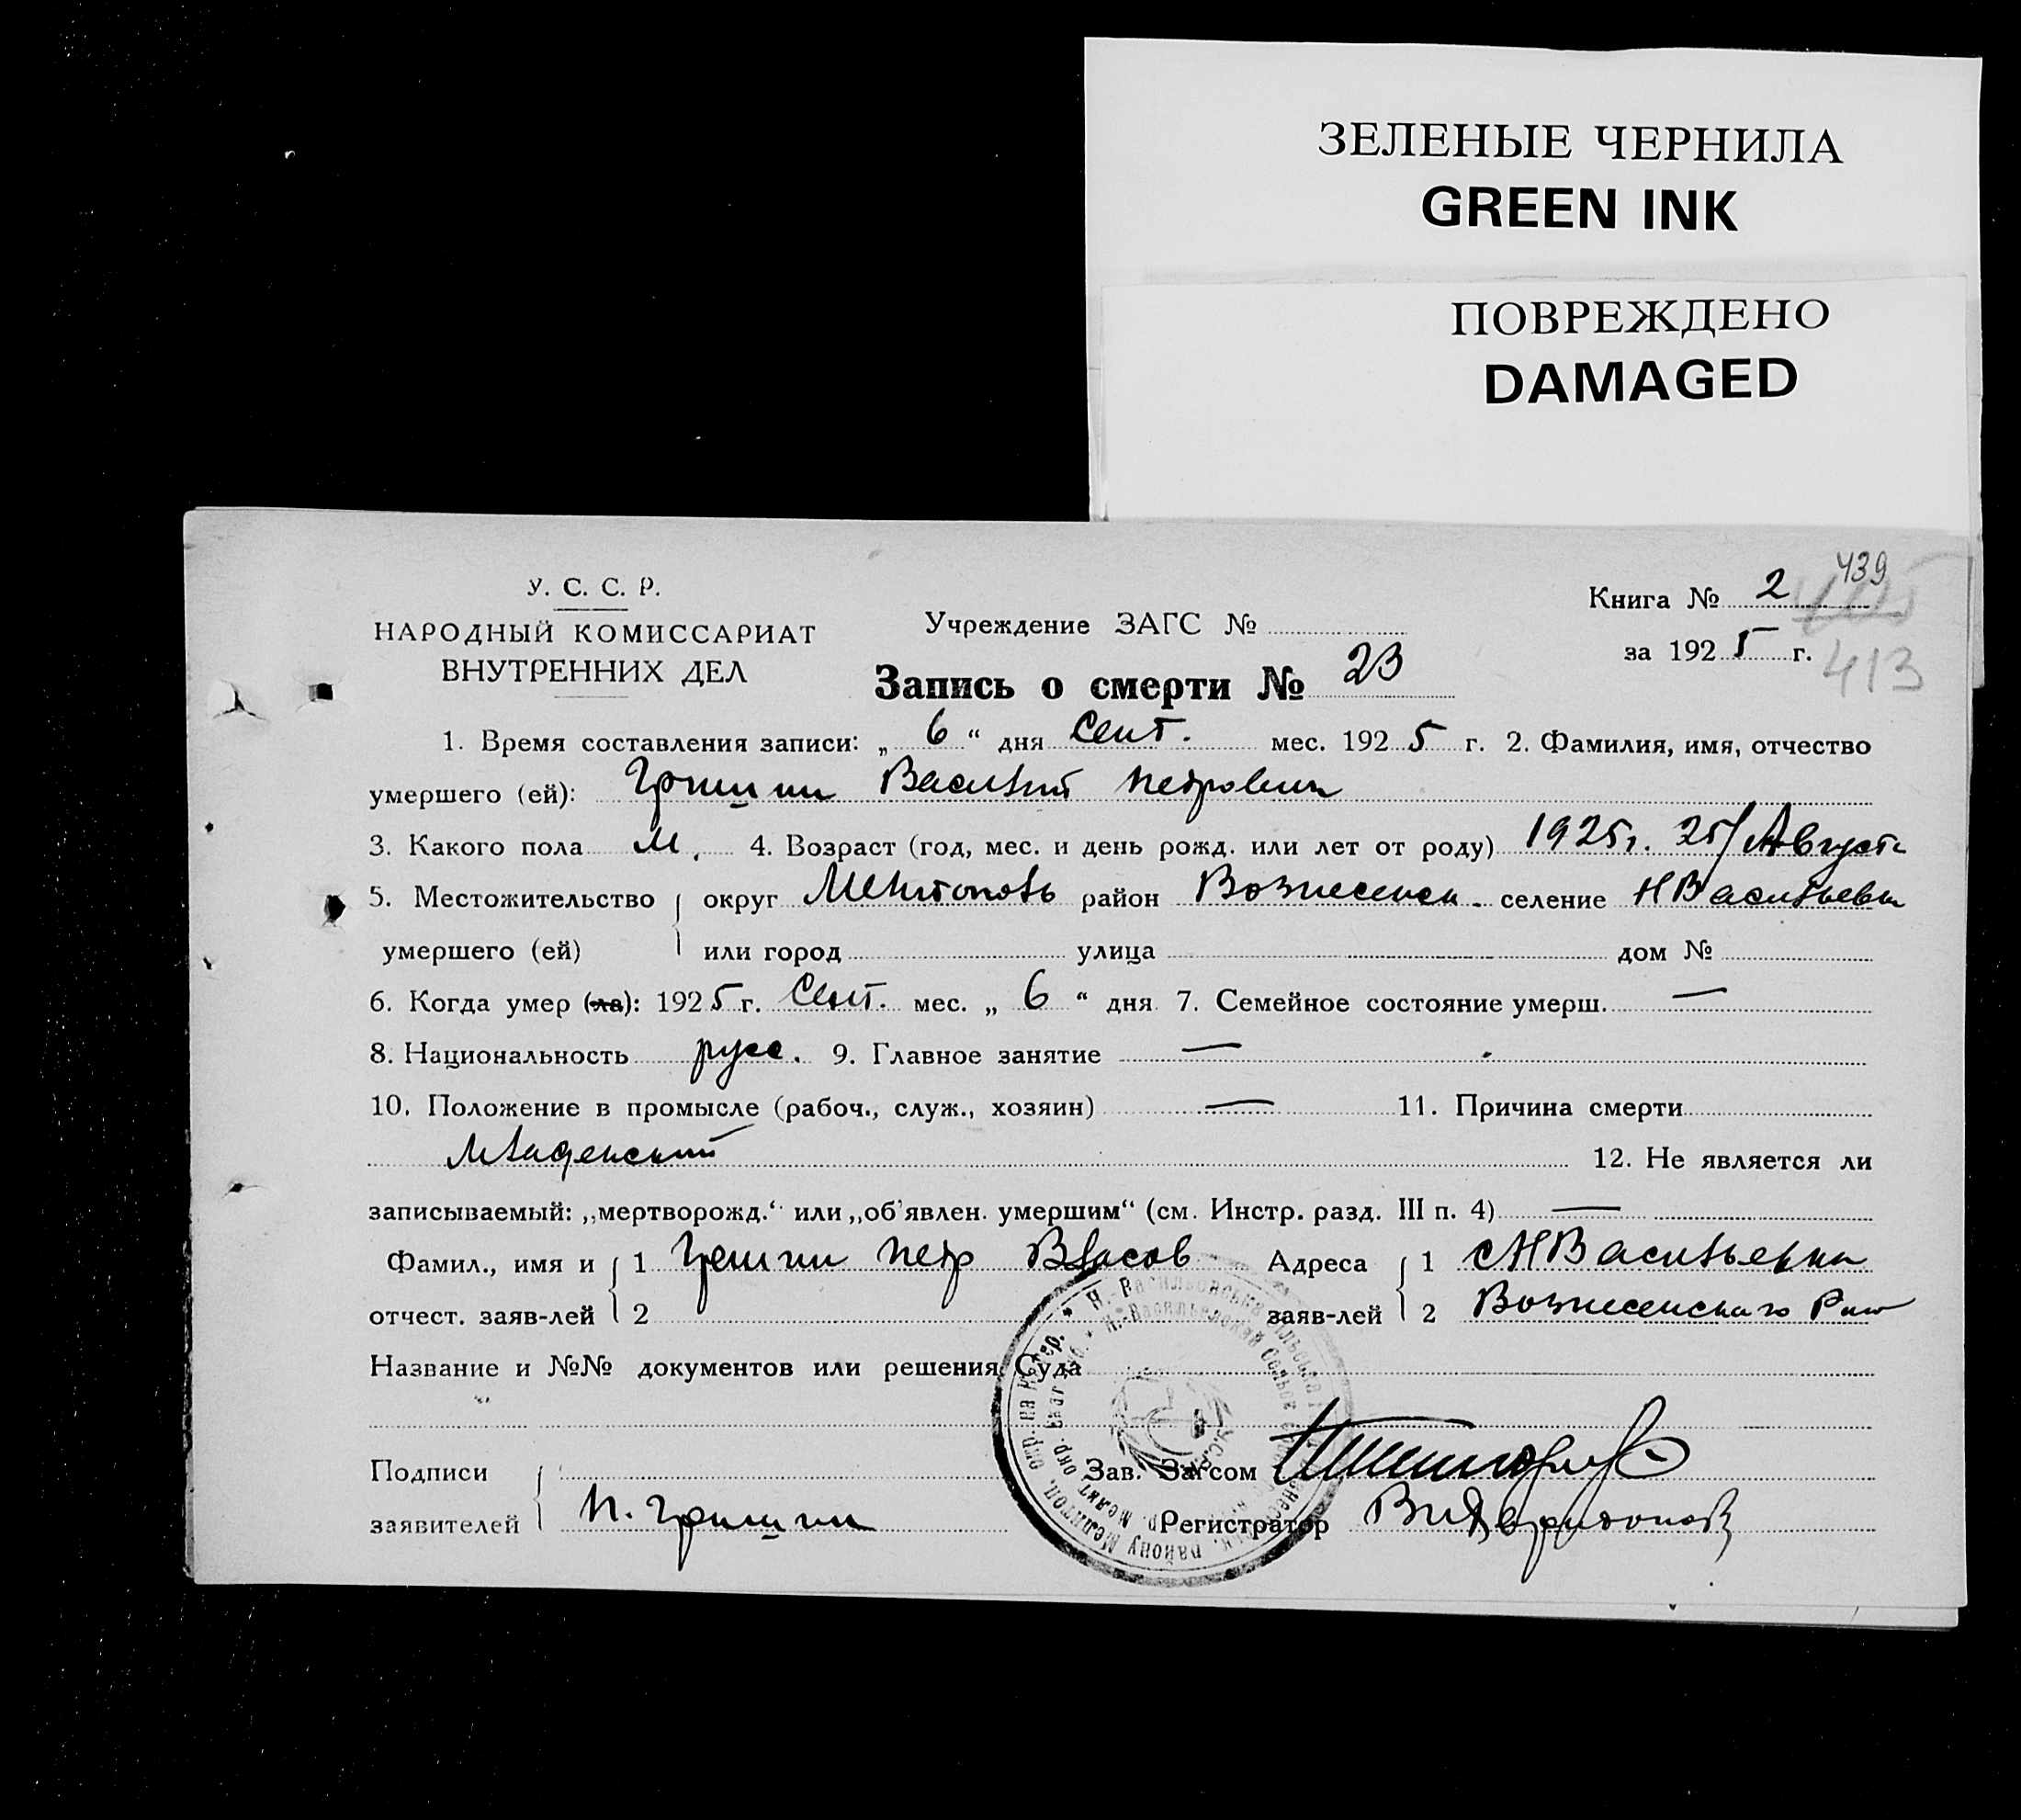 ЗЕЛЕНЫЕ ЧЕРНИЛА
GREEN INK
ПОВРЕЖДЕНО
DAMAGED
У. С. С. Р.
НАРОДНЫЙ КОМИССАРИАТ
ВНУТРЕННИХ ДЕЛ
Учреждение ЗАГС №
Запись о смерти № 23
Книга № 2 439
за 1925 г. 413
1. Время составления записи: „ 6 “ дня Сент. мес. 1925 г. 2. Фамилия, имя, отчество
умершего (ей): Гришин Василий Петрович
3. Какого пола м. 4. Возраст (год, мес. и день рожд. или лет от роду) 1925г. 25/Августа
5. Местожительство округ Мелитополь район Вознесенск. селение НВасильевка
умершего (ей) или город улица дом №
6. Когда умер (ла): 1925 г. Сент. мес. „ 6 “ дня 7. Семейное состояние умерш. —
8. Национальность русс. 9. Главное занятие —
10. Положение в промысле (рабоч., служ., хозяин) — 11. Причина смерти
Младенский 12. Не является ли
записываемый: „мертворожд.“ или „об'явлен. умершим“ (см. Инстр. разд. III п. 4) —
Фамил., имя и 1 Гришин Петр Власов Адреса 1 сНВасильевка
отчест. заяв-лей 2 заяв-лей 2 Вознесенскаго
Название и №№ документов или решения Суда
Подписи Зав. Загсом
заявителей П. Гришин Регистратор